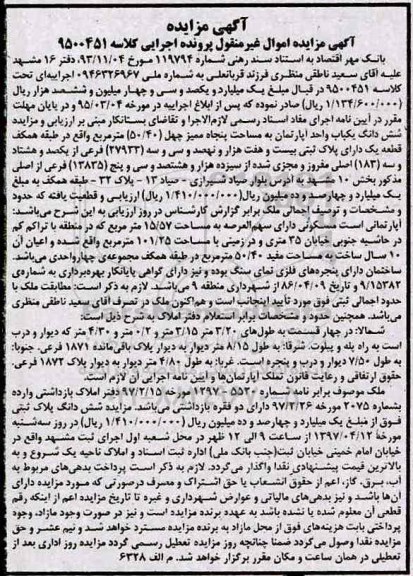 آگهی مزایده
آگهی مزایده اموال غیرمنقول پرونده اجرایی کلاسه ۹۵۰۰۴۵۱
بانک مهر اقتصاد به استناد سند رهنی شماره ۱۱۹۷۹۴ مورخ ۹۳/۱۱/۰۴، دفتر ۱۶ مشهد
علیه آقای سعید ناطقی منظری فرزند قربانعلی به شماره ملی ۰۹۴۶۳۲۶۹۶۷ اجراییه‌ای تحت
کلاسه ۹۵۰۰۴۵۱ در قبال مبلغ یک میلیارد و یکصد و سی و چهار میلیون و ششصد هزار ریال
(۱/۱۳۴/۶۰۰/۰۰۰ ریال) صادر نموده که پس از ابلاغ اجراییه در مورخه ۹۵/۰۳/۰۴ و در پایان مهلت
مقرر در آیین نامه اجرای مفاد اسناد رسمی لازم‌الاجرا و تقاضای بستانکار مبنی بر ارزیابی و مزایده
شش دانگ یکباب واحد آپارتمان به مساحت پنجاه ممیز چهل (۵۰/۴۰) مترمربع واقع در طبقه همکف
قطعه یک دارای پلاک ثبتی بیست و هفت هزار و نهصد و سی و سه (۲۷۹۳۳) فرعی از یکصد و هشتاد
و سه (۱۸۳) اصلی مفروز و مجزی شده از سیزده هزار و هشتصد و سی و پنج (۱۳۸۳۵) فرعی از اصلی
مذکور بخش ۱۰ مشهد به آدرس بلوار صیاد شیرازی - صیاد ۱۳ - پلاک ۳۲ - طبقه همکف به مبلغ
یک میلیارد و چهارصد و ده میلیون ریال (۱/۴۱۰/۰۰۰/۰۰۰ ریال) ارزیابی و قطعیت یافته که حدود
و مشخصات و توصیف اجمالی ملک برابر گزارش کارشناس در روز ارزیابی به این شرح می‌باشد:
آپارتمانی است مسکونی دارای سهم‌العرصه به مساحت ۱۵/۵۷ متر مربع که در منطقه با تراکم کم
در حاشیه جنوبی خیابان ۳۵ متری و در زمینی با مساحت ۱۰۱/۲۵ مترمربع واقع شده و اعیان آن
۱۰ سال ساخت به مساحت مفید ۵۰/۴۰ مترمربع در طبقه همکف مجموعه‌ی چهارواحدی می‌باشد.
ساختمان دارای پنجره‌های فلزی نمای سنگ بوده و نیز دارای گواهی پایانکار بهره‌برداری به شماره‌ی
۹/۱۵۳۸۲ و تاریخ ۸۶/۰۴/۰۹ از شهرداری منطقه ۹ می‌باشد. لازم به ذکر است: مطابقت ملک با
حدود اجمالی ثبتی فوق مورد تأیید اینجانب است و هم‌اکنون ملک در تصرف آقای سعید ناطقی منظری
می‌باشد. همچنین حدود و مشخصات برابر استعلام دفتر املاک به شرح ذیل است.
شمالا: در چهار قسمت به طول‌های ۳/۲۰ متر ۳/۱۵ متر و ۰/۲ متر و ۴/۳۰ متر که دیوار و درب
است به راه پله و پیلوت. شرقا: به طول ۸/۱۵ متر دیوار به دیوار پلاک باقی‌مانده ۱۸۷۱ فرعی. جنوبا:
به طول ۷/۵۰ دیوار و درب و پنجره است. غربا: به طول ۴/۸۰ متر دیوار به دیوار پلاک ۱۸۷۲ فرعی.
حقوق ارتفاقی و رعایت قانون تملک آپارتمان‌ها و آیین نامه اجرایی آن لازم است.
ملک موصوف برابر نامه شماره مورخه ۹۷/۲/۱۵ دفتر املاک بازداشتی وارده
بشماره ۲۰۷۵ مورخه ۹۷/۲/۲۶ دارای دو فقره بازداشتی می‌باشد. مزایده شش دانگ پلاک ثبتی
فوق از مبلغ یک میلیارد و چهارصد و ده میلیون ریال (۱/۴۱۰/۰۰۰/۰۰۰ ریال) در روز سه‌شنبه
مورخهٔ ۱۳۹۷/۰۴/۱۲ از ساعت ۹ الی ۱۲ ظهر در محل شعبه اول اجرای ثبت مشهد واقع در
خیابان امام خمینی خیابان ثبت(جنب بانک ملی) اداره ثبت اسناد و املاک ناحیه یک شروع و به
بالاترین قیمت پیشنهادی نقدا واگذار می‌گردد. لازم به ذکر است پرداخت بدهی‌های مربوط به
آب، برق، گاز، اعم از حقوق انشعاب یا حق اشتراک و مصرف درصورتی که مورد مزایده دارای
آن‌ها باشد و نیز بدهی‌های مالیاتی و عوارض شهرداری و غیره تا تاریخ مزایده اعم از اینکه رقم
قطعی آن معلوم شده یا نشده باشد به عهده برنده مزایده است و نیز در صورت وجود مازاد، وجوه
پرداختی بابت هزینه‌های فوق از محل مازاد به برنده مزایده مسترد خواهد شد و نیم عشر و حق
مزایده نقدا وصول می‌گردد ضمنا چنانچه روز مزایده تعطیل رسمی گردد مزایده روز اداری بعد از
تعطیلی در همان ساعت و مکان مقرر برگزار خواهد شد. م الف ۶۳۲۸